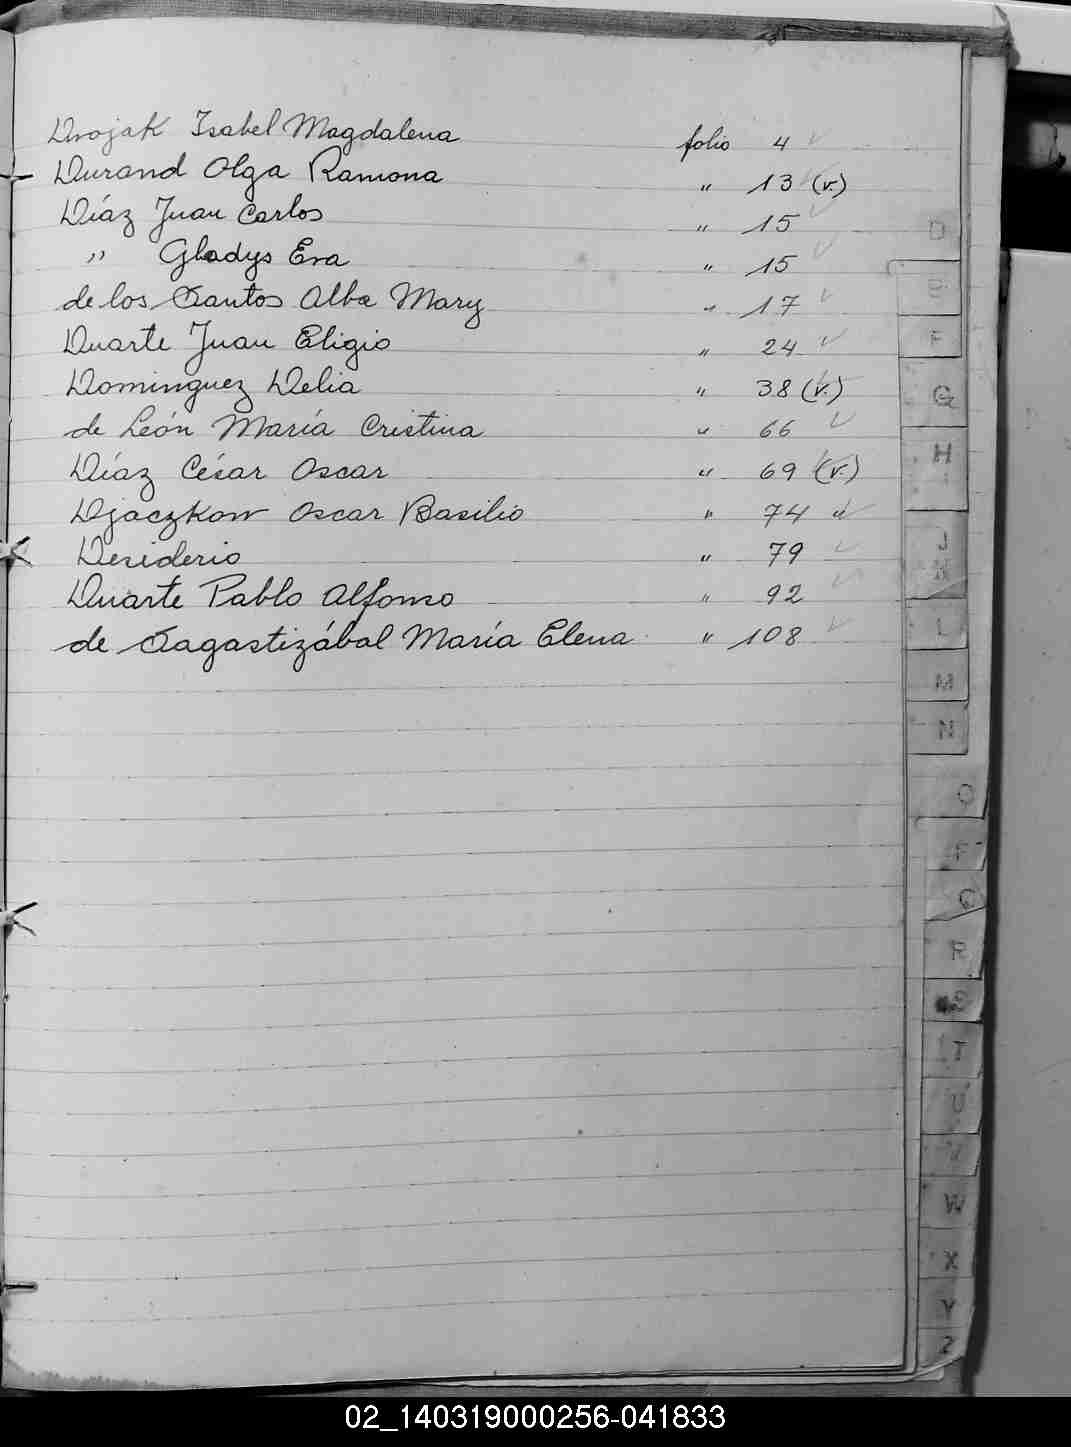 Drojak Isabel Magdalena folio 4 ✓
Durand Olga Ramona " 13 (v.)
Díaz Juan Carlos " 15 ✓
" Gladys Eva " 15 ✓
de los Santos Alba Mary " 17 ✓
Duarte Juan Eligio " 24 ✓
Dominguez Delia " 38 (v.)
de León María Cristina " 66 ✓
Díaz César Oscar " 69 (v.)
Djaczkow Oscar Basilio " 74 " ✓
Desiderio " 79 ✓
Duarte Pablo Alfonso " 92 ✓
de Sagastizábal María Elena " 108 ✓
D
E
F
G
H
J
K
L
M
N
O
P
Q
R
S
T
U
V
W
X
Y
Z
02_140319000256-041833